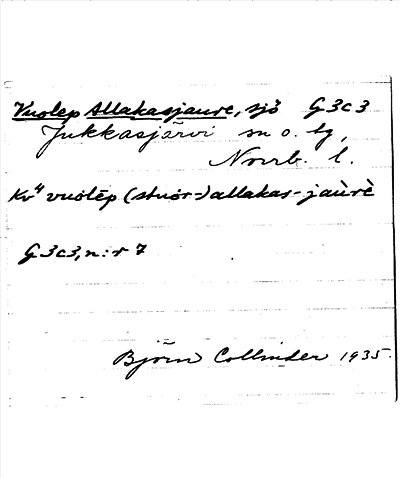 Vuolep Allakasjaure, sjö G 3 c 3
Jukkasjärvi sn o. tg,
Norrb. l.
Kv" vuolēp (stuor-) allakas-jaùrè
G 3 c 3, n:r 7
Björn Collinder 1935.